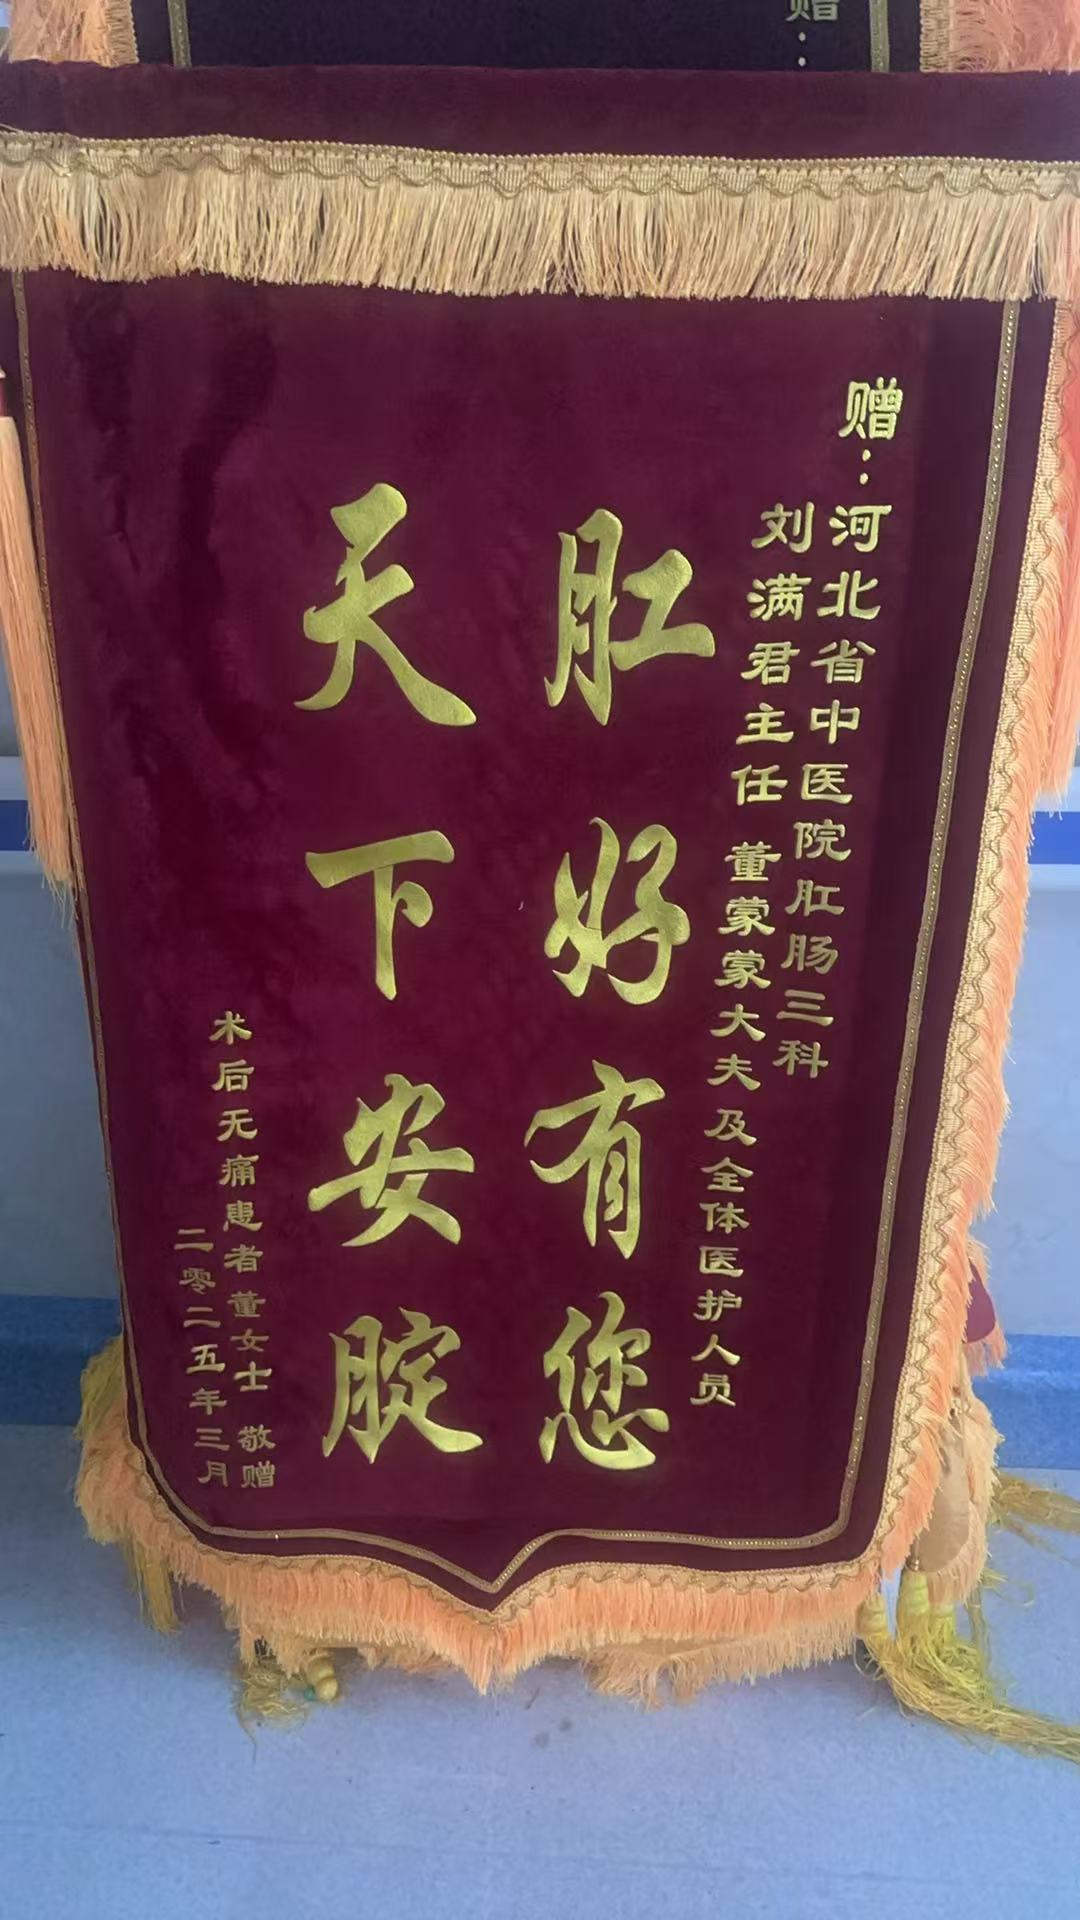 赠:
赠:河北省中医院肛肠三科
刘满君主任 董蒙蒙大夫及全体医护人员
肛好有您
天下安腚
术后无痛患者董女士 敬赠
二零二五年三月